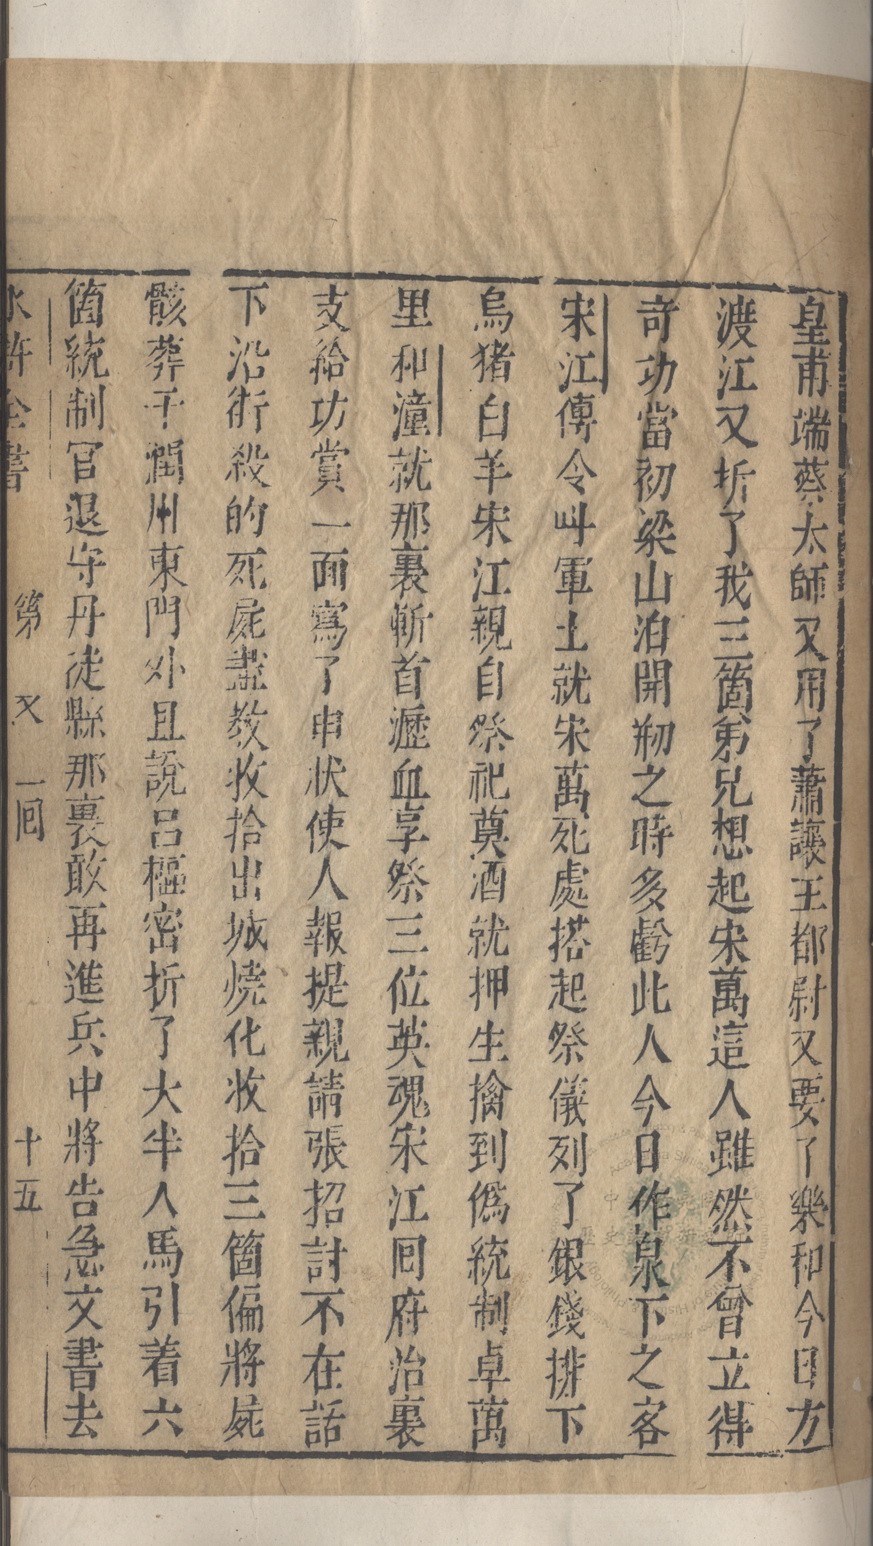 皇甫端蔡太師又用了蕭讓王都尉又要了樂和今日方
渡江又折了我三箇弟兄想起宋萬這人雖然不曾立得
奇功當初梁山泊開剏之時多虧此人今日作泉下之客
宋江傳令叫軍士就宋萬死處搭起祭儀列了銀錢排下
烏猪白羊宋江親自祭祀奠酒就押生擒到偽統制卓萬
里和潼就那裏斬首瀝血享祭三位英魂宋江囘府治裏
支給功賞一面寫了申状使人報捉親請張招討不在話
下沿街殺的死屍盡教收拾出城燒化收拾三箇偏將屍
骸葬于潤州東門外且說呂樞密折了大半人馬引着六
箇統制官退守丹徒縣那裏敢再進兵申將告急文書去
水滸全書 第 又一囘 十五